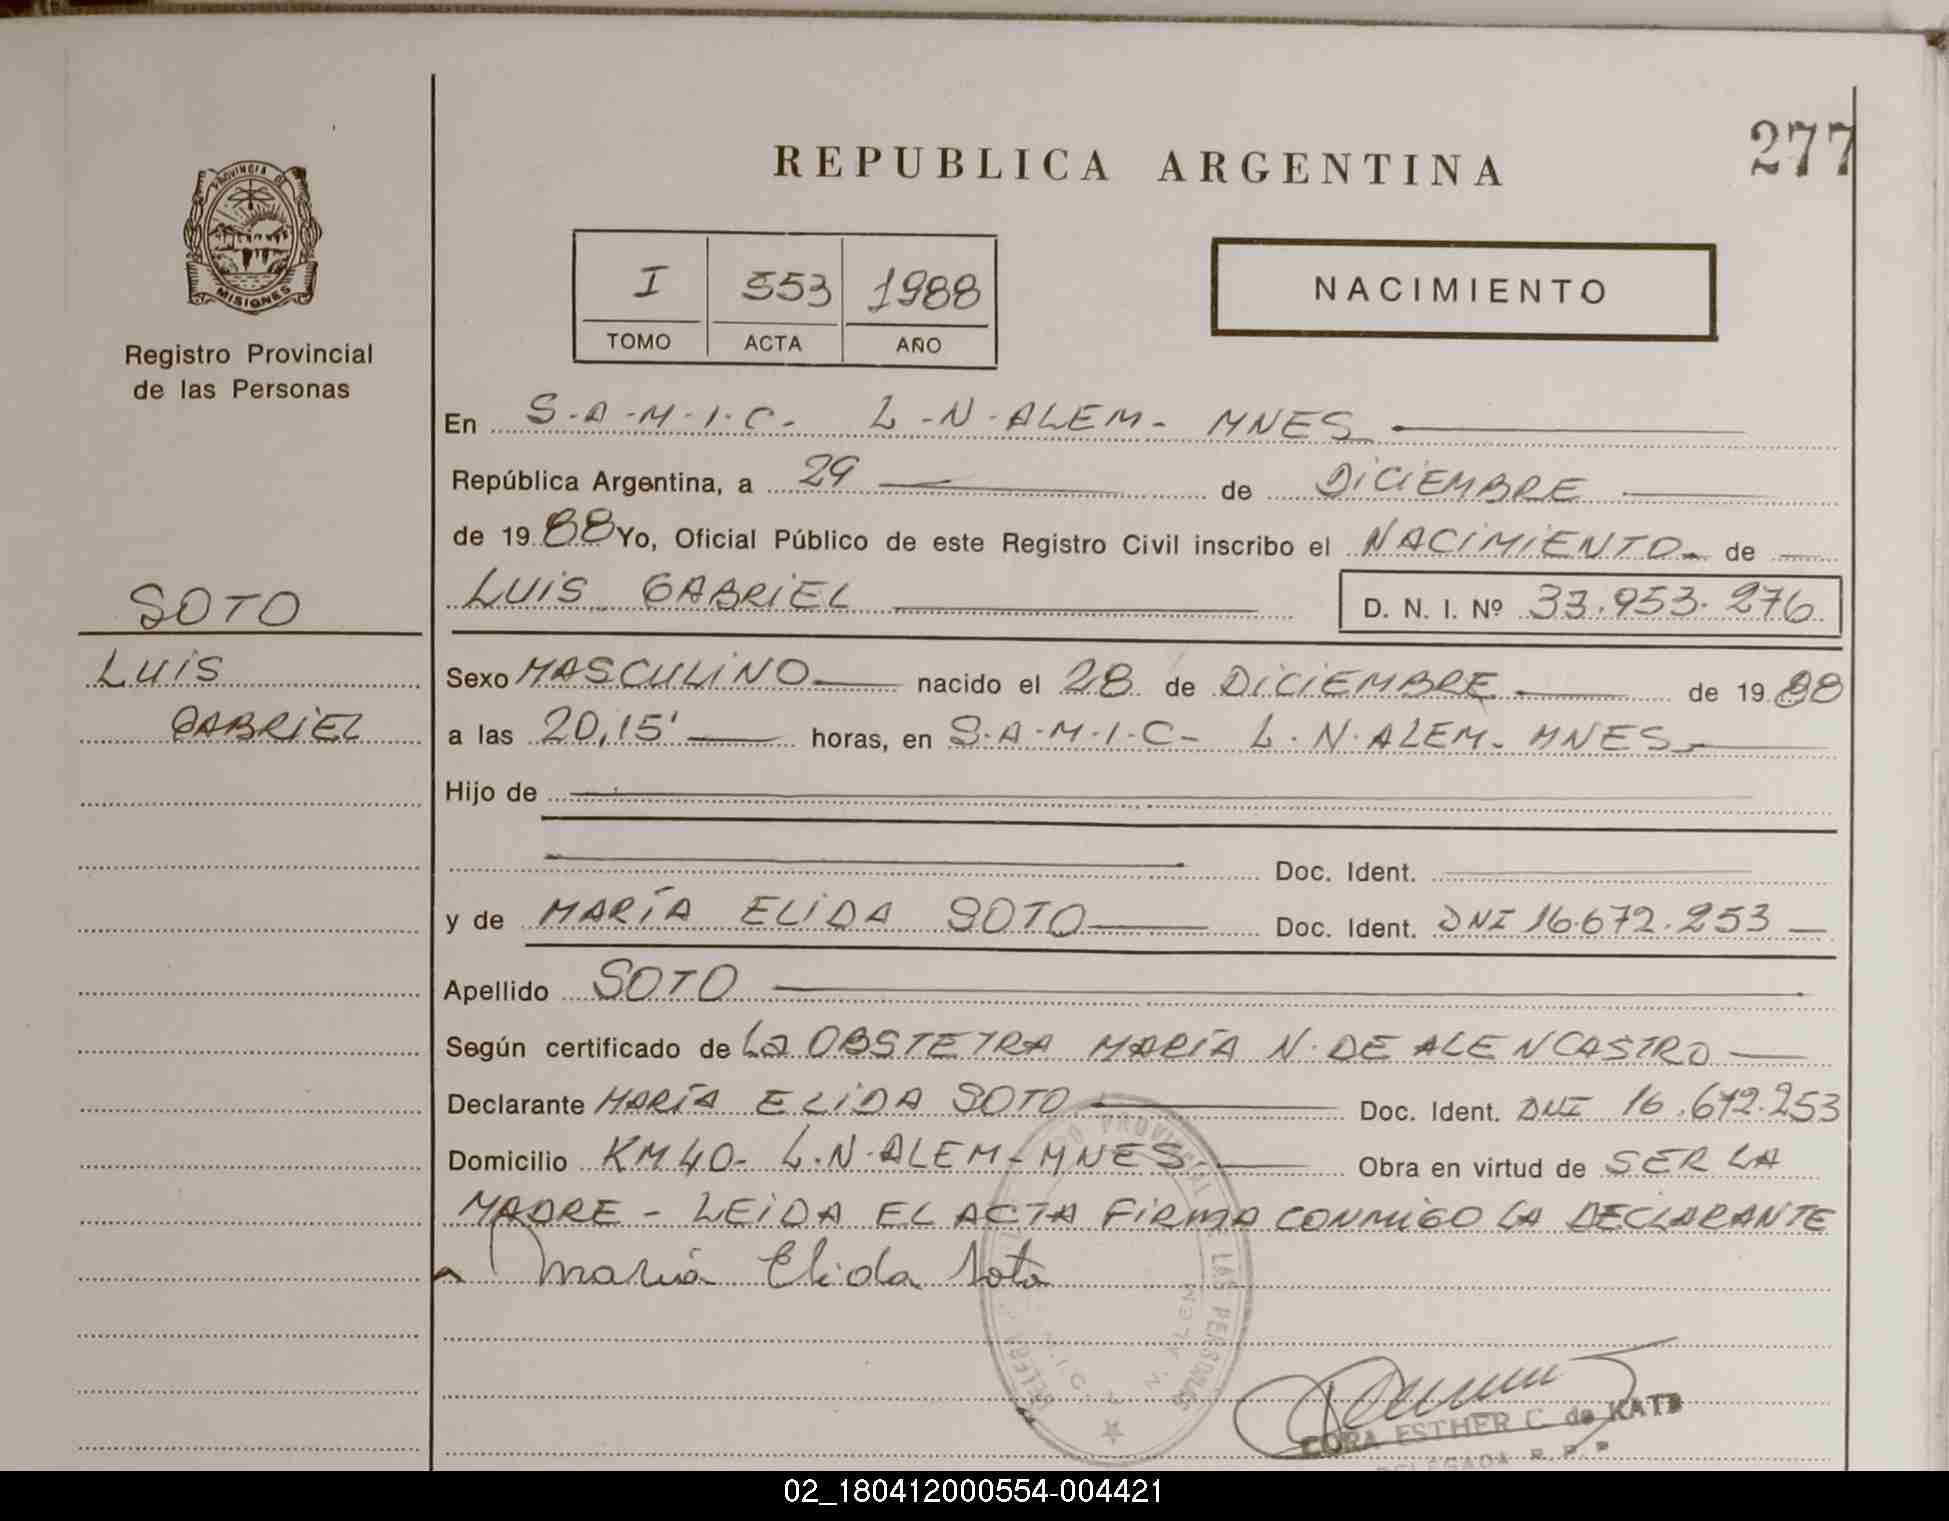 277
REPUBLICA ARGENTINA
PROVINCIA DE
MISIONES
Registro Provincial
de las Personas
I 553 1988
TOMO ACTA AÑO
NACIMIENTO
En S.A.M.I.C. L.N.ALEM. MNES
República Argentina, a 29 de DICIEMBRE
de 1988 Yo, Oficial Público de este Registro Civil inscribo el NACIMIENTO de
LUIS GABRIEL D. N. I. Nº 33.953.276
SOTO
LUIS
GABRIEL
Sexo MASCULINO nacido el 28 de DICIEMBRE de 1988
a las 20,15' horas, en S.A.M.I.C. L.N.ALEM. MNES
Hijo de
Doc. Ident.
y de MARÍA ELIDA SOTO Doc. Ident. DNI 16.672.253
Apellido SOTO
Según certificado de La OBSTETRA MARÍA N. DE ALENCASTRO
Declarante MARÍA ELIDA SOTO Doc. Ident. DNI 16.672.253
Domicilio KM 40- L.N.ALEM-MNES- Obra en virtud de SER LA
MADRE - LEIDA EL ACTA FIRMA CONMIGO LA DECLARANTE
María Elida Soto
PROVINCIAL DE LAS PERSONAS
N. ALEM
CORA ESTHER C. de KATZ
DELEGADA R.P.P.
02_180412000554-004421